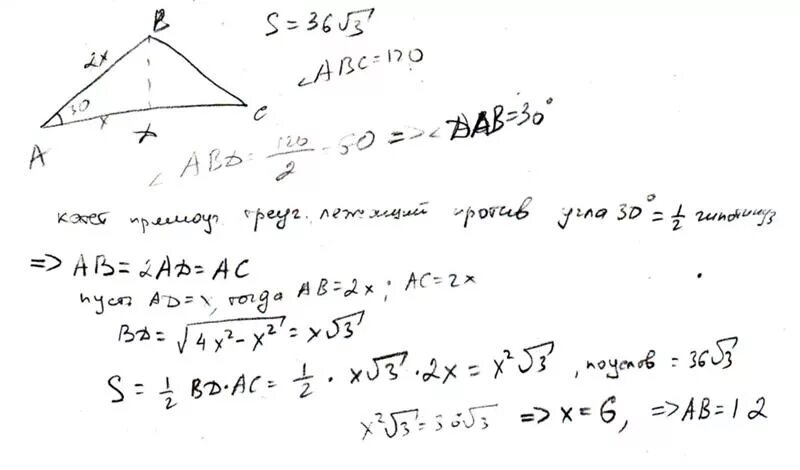 B
S = 36√3
2x
∠ABC = 120
30
A
x
D
C
∠ABD = 120/2 = 60 => ∠DAB = 30°
катет прямоуг. треуг. лежащий против угла 30° = 1/2 гипотенуз
=> AB = 2AD = AC
пусть AD = x, тогда AB = 2x ; AC = 2x
BD = √4x² - x² = x√3
S = 1/2 BD · AC = 1/2 · x√3 · 2x = x²√3 , по услов = 36√3
x²√3 = 36√3 => x = 6, => AB = 12